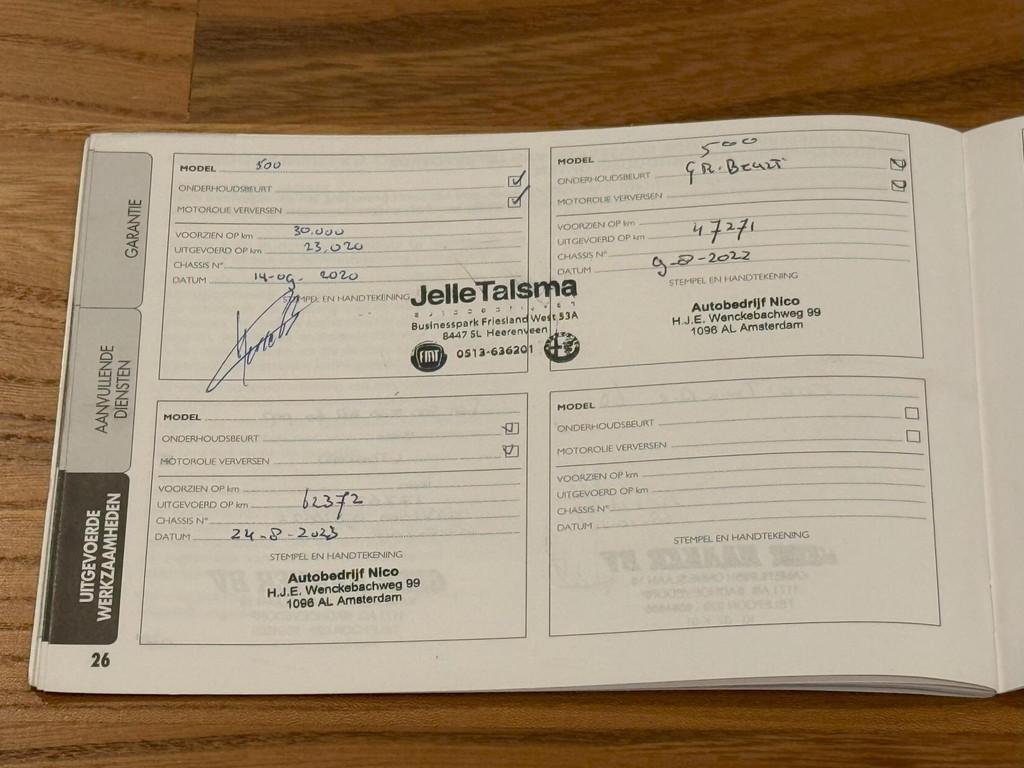 GARANTIE
AANVULLENDE
DIENSTEN
UITGEVOERDE
WERKZAAMHEDEN
26
MODEL 500
ONDERHOUDSBEURT
MOTOROLIE VERVERSEN
VOORZIEN OP km 30.000
UITGEVOERD OP km 23,020
CHASSIS N°
DATUM 14-09-2020
STEMPEL EN HANDTEKENING
JelleTalsma
Businesspark Friesland West 53A
8447 SL Heerenveen
FIAT 0513-636201
MODEL 500
ONDERHOUDSBEURT GR. Beurt
MOTOROLIE VERVERSEN
VOORZIEN OP km
UITGEVOERD OP km 47271
CHASSIS N°
DATUM 9-8-2022
STEMPEL EN HANDTEKENING
Autobedrijf Nico
H.J.E. Wenckebachweg 99
1096 AL Amsterdam
MODEL
ONDERHOUDSBEURT
MOTOROLIE VERVERSEN
VOORZIEN OP km
UITGEVOERD OP km 62372
CHASSIS N°
DATUM 24-8-2023
STEMPEL EN HANDTEKENING
Autobedrijf Nico
H.J.E. Wenckebachweg 99
1096 AL Amsterdam
MODEL
ONDERHOUDSBEURT
MOTOROLIE VERVERSEN
VOORZIEN OP km
UITGEVOERD OP km
CHASSIS N°
DATUM
STEMPEL EN HANDTEKENING